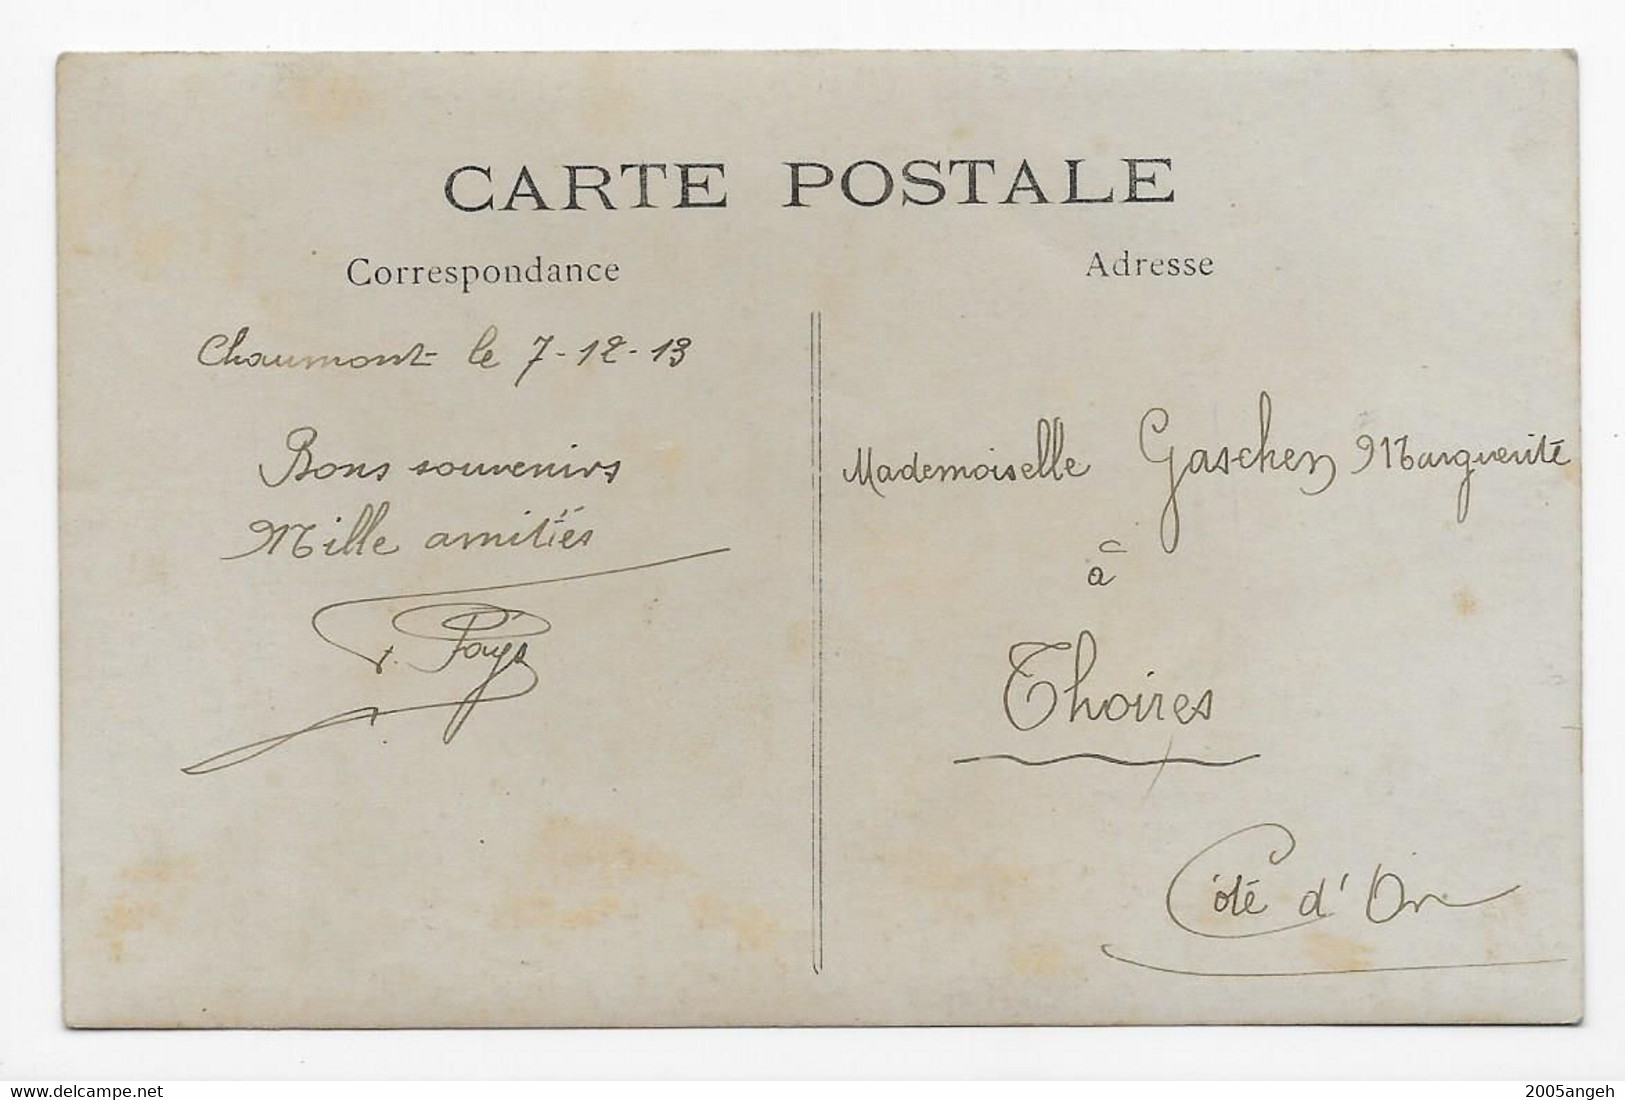 CARTE POSTALE
Correspondance
Adresse
Chaumont le 7-12-13
Bons souvenirs
Mille amitiés
Mademoiselle Gaschen Marguerite
à
Thoires
Côté d'Or
https://www.delcampe.net
2005angeh